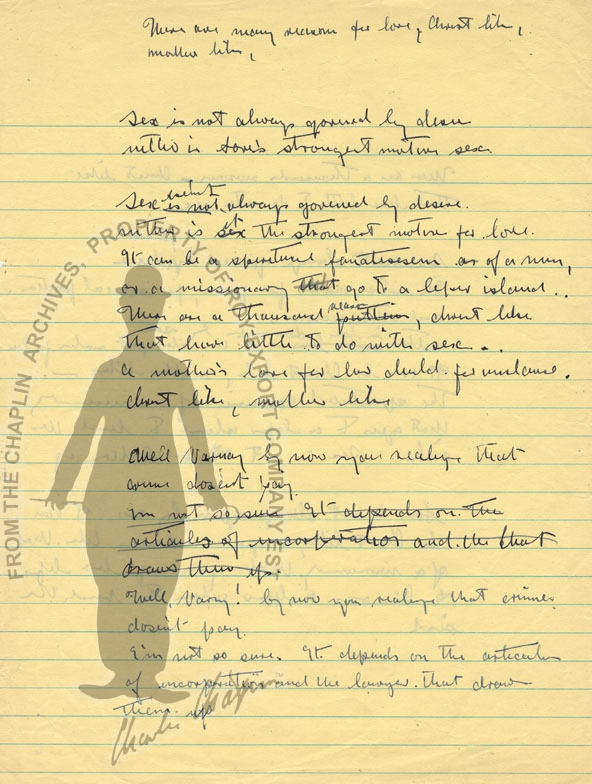 There are many reasons for love, Christ like,
mother like,
Sex is not always goverend by desire
nither is love's strongest motive sex.
isent
Sex is not always governed by desire.
it
nither is sex the strongest motive for love.
It can be a spiritual as of a nun,
or a missionary that go to a leper island..
reasons
There are a thousand, christ like
that have little to do with sex..
a mother's love for her child. for instance.
christ like, mother like
Well Varnay by now you realize that
crime dosent pay.
I'm not so sure It depends on the
articules of incorporation and the that
draws them up.
Well, Varny! by now you realize that crime
dosent pay.
I'm not so sure. It depends on the articules
of incorporation and the lawyer that draw
them up
FROM THE CHAPLIN ARCHIVES, PROPERTY OF ROY EXPORT COMPANY EST.
Charlie Chaplin